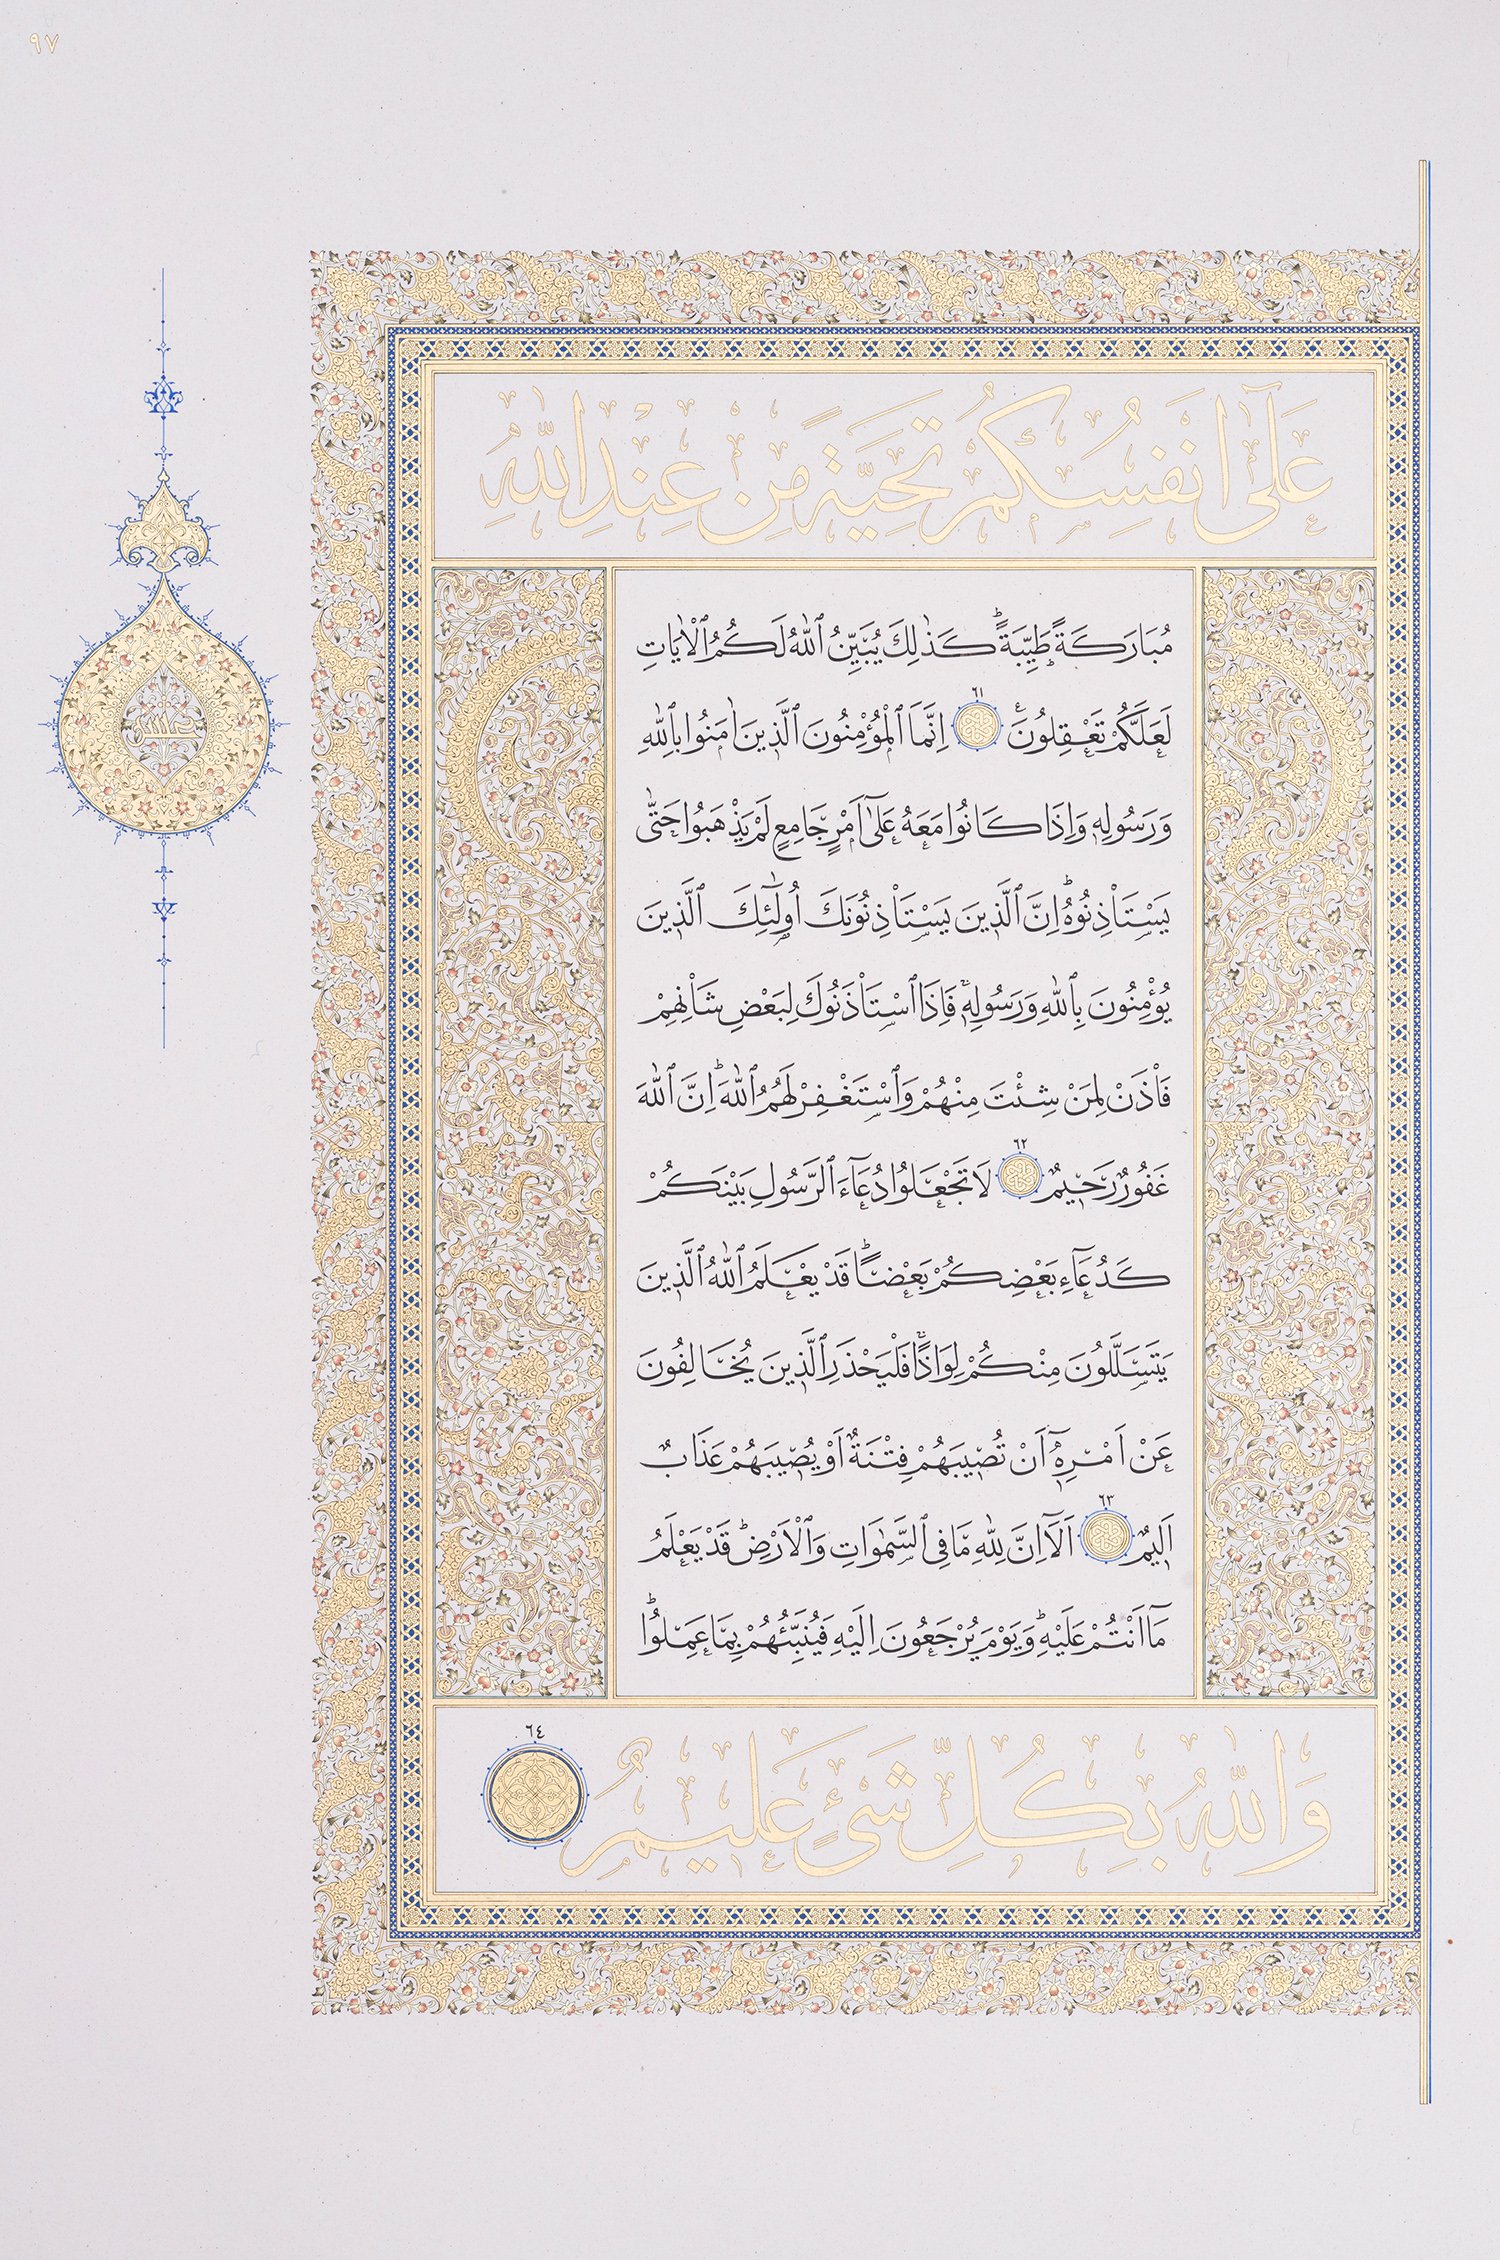 ٩٧
عَلٰٓى اَنْفُسِكُمْ تَحِيَّةً مِنْ عِنْدِ اللّٰهِ
مُبَارَكَةً طَيِّبَةًۜ كَذٰلِكَ يُبَيِّنُ ٱللّٰهُ لَكُمُ ٱلْاٰيَاتِ
لَعَلَّكُمْ تَعْقِلُونَ ٦١ اِنَّمَا ٱلْمُؤْمِنُونَ ٱلَّذِينَ اٰمَنُوا بِٱللّٰهِ
وَرَسُولِهٖ وَاِذَا كَانُوا مَعَهُ عَلٰٓى اَمْرٍ جَامِعٍ لَمْ يَذْهَبُوا حَتّٰى
يَسْتَأْذِنُوهُۜ اِنَّ ٱلَّذِينَ يَسْتَأْذِنُونَكَ اُولٰٓئِكَ ٱلَّذِينَ
يُؤْمِنُونَ بِٱللّٰهِ وَرَسُولِهٖۚ فَاِذَا ٱسْتَأْذَنُوكَ لِبَعْضِ شَأْنِهِمْ
فَأْذَنْ لِمَنْ شِئْتَ مِنْهُمْ وَٱسْتَغْفِرْ لَهُمُ ٱللّٰهَۜ اِنَّ ٱللّٰهَ
غَفُورٌ رَحِيمٌ ٦٢ لَا تَجْعَلُوا دُعَٓاءَ ٱلرَّسُولِ بَيْنَكُمْ
كَدُعَٓاءِ بَعْضِكُمْ بَعْضًاۜ قَدْ يَعْلَمُ ٱللّٰهُ ٱلَّذِينَ
يَتَسَلَّلُونَ مِنْكُمْ لِوَاذًاۚ فَلْيَحْذَرِ ٱلَّذِينَ يُخَالِفُونَ
عَنْ اَمْرِهٖٓ اَنْ تُصِيبَهُمْ فِتْنَةٌ اَوْ يُصِيبَهُمْ عَذَابٌ
اَلِيمٌ ٦٣ اَلَٓا اِنَّ لِلّٰهِ مَا فِى ٱلسَّمٰوَاتِ وَٱلْاَرْضِۜ قَدْ يَعْلَمُ
مَٓا اَنْتُمْ عَلَيْهِۜ وَيَوْمَ يُرْجَعُونَ اِلَيْهِ فَيُنَبِّئُهُمْ بِمَا عَمِلُواۜ
وَاللّٰهُ بِكُلِّ شَىْءٍ عَلِيمٌ ٦٤